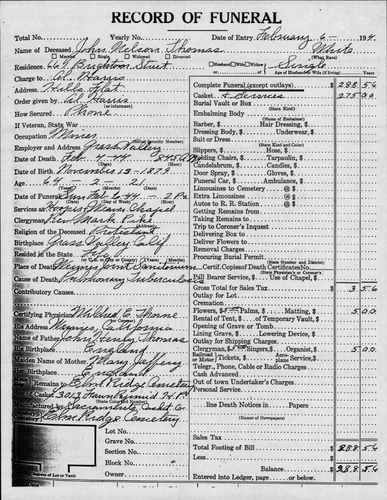 RECORD OF FUNERAL
Total No. Yearly No. Date of Entry February 6 - 194
Name of Deceased John Nelson Thomas White
Married Single Widowed Divorced (What Race)
Residence Brighton Street Single
Age of Husband or Wife (if living) Years
Charge to Al. Harris
Address Hills Flat
Order given by Al Harris
(or informant)
How Secured Phone
If Veteran, State War
Occupation Miner
Employer and Address Grass Valley
Date of Death Feb. 4 - 44 8:45 AM
Date of Birth November 13 - 1879
Age 64 - 2 - 21
(Years) (Months) (Days)
Date of Funeral Sun Feb. 6 - 44 - 2 PM
Services at Hooper & Weaver Chapel
Clergyman Rev. Mark Pike
Religion of the Deceased Protestant
Birthplace Grass Valley, Calif
Resided in the State Life
Place of Death Weimar Joint Sanitorium
Cause of Death Pulmonary Tuberculosis
Contributory Causes
Certifying Physician Mildred E. Thorne
His Address Weimar, California
Name of Father John Henry Thomas
His Birthplace England
Maiden Name of Mother Mary Jeffery
Her Birthplace England
Remains to Elm Ridge Cemetery
of Casket 3013
Manufactured by Sacramento Casket Co
Elm Ridge Cemetery
Diagram of Lot or Vault
Lot No.
Grave No.
Section No.
Block No.
Owner
Complete Funeral (except outlays) $ 288 56
Casket & Services 275 00
Burial Vault or Box
(State Kind)
Embalming Body
(Name of Embalmer)
Barber, $ Hair Dressing, $
Dressing Body, $ Underwear, $
Suit or Dress
(State Kind and Color)
Slippers, $ Hose, $
Folding Chairs, $ Tarpaulin, $
Candelabrum, $ Candles, $
Door Spray, $ Gloves, $
Funeral Car, $ Ambulance, $
Limousines to Cemetery @ $
Limousines @ $
Autos to R. R. Station @ $
Getting Remains from
Taking Remains to
Trip to Coroner's Inquest
Delivering Box to
Deliver Flowers to
Removal Charges
Procuring Burial Permit
(State Number and District)
Certif. Copies of Death Certificates No.
(State Physician's or Coroner's)
Pall Bearer Service, $ Use of Chapel, $
Gross Total for Sales Tax $ 3 56
Outlay for Lot
Cremation
Flowers, $ Palms, $ Matting, $ 5 00
Rental of Tent, $ of Temporary Vault, $
Opening of Grave or Tomb
Lining Grave, $ Lowering Device, $
Outlay for Shipping Charges
Clergyman, $ Singers, $ Organist, $ 5 00
Railroad or Motor Tickets, $ Aeroplane Service, $
Telegr., Phone, Cable or Radio Charges
Cash Advanced
Out of town Undertaker's Charges
Personal Service
line Death Notices in Papers
(Names of Newspapers)
Sales Tax
Total Footing of Bill $ 288 56
Less
Balance $ 288 56
Entered into Ledger, page or below.